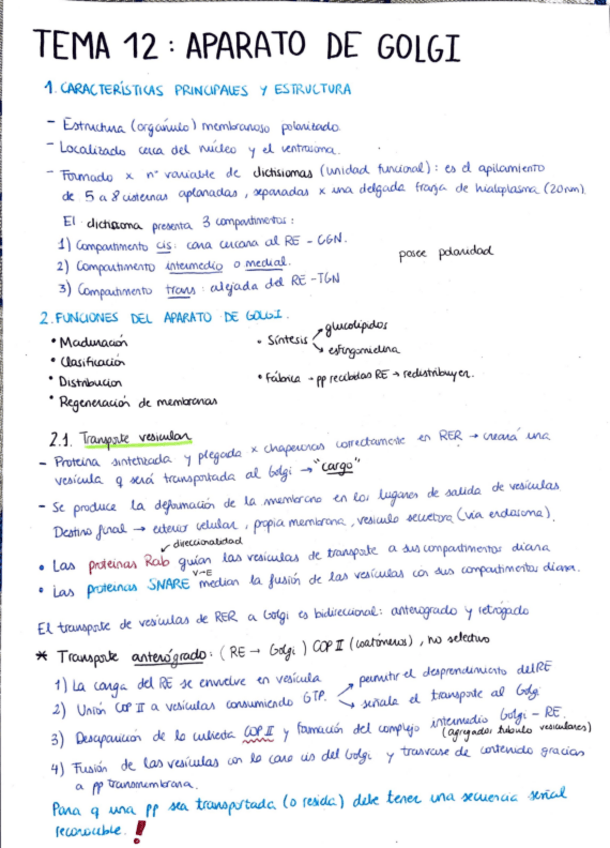 TEMA 12 : APARATO DE GOLGI
1. CARACTERÍSTICAS PRINCIPALES Y ESTRUCTURA
- Estructura (orgánulo) membranoso polarizado.
- Localizado cerca del núcleo y el centrosoma.
- Formado x nº variable de dictiosomas (unidad funcional) : es el apilamiento
de 5 a 8 cisternas aplanadas, separadas x una delgada franja de hialoplasma (20nm).
El dictiosoma presenta 3 compartimentos :
1) Compartimento cis: cara cercana al RE - CGN.
posee polaridad
2) Compartimento intermedio o medial.
3) Compartimento trans : alejada del RE - TGN
2. FUNCIONES DEL APARATO DE GOLGI.
• Maduración
• Síntesis → glucolípidos
→ esfingomielina
• Clasificación
• Distribución
• Fábrica → pp recibidas RE → redistribuyen.
• Regeneración de membranas
2.1. Transporte vesicular
- Proteína sintetizada y plegada x chaperonas correctamente en RER → creará una
vesícula q será transportada al Golgi → "cargo"
- Se produce la deformación de la membrana en los lugares de salida de vesículas.
Destino final → exterior celular, propia membrana, vesícula secretora (vía endosoma).
↙ direccionalidad
• Las proteínas Rab guían las vesículas de transporte a sus compartimentos diana
V→E
• Las proteínas SNARE median la fusión de las vesículas con sus compartimentos diana.
El transporte de vesículas de RER a Golgi es bidireccional: anterógrado y retrógado
* Transporte anterógrado: (RE → Golgi) COP II (coatómeros), no selectivo
1) La carga del RE se envuelve en vesícula
→ permitir el desprendimiento del RE
2) Unión COP II a vesículas consumiendo GTP. → señala el transporte al Golgi
3) Desaparición de la cubierta COP II y formación del complejo intermedio Golgi - RE.
(agregados túbulo vesiculares)
4) Fusión de las vesículas con la cara cis del Golgi y trasvase de contenido gracias
a pp transmembrana.
Para q una pp sea transportada (o resida) debe tener una secuencia señal
reconocible. !